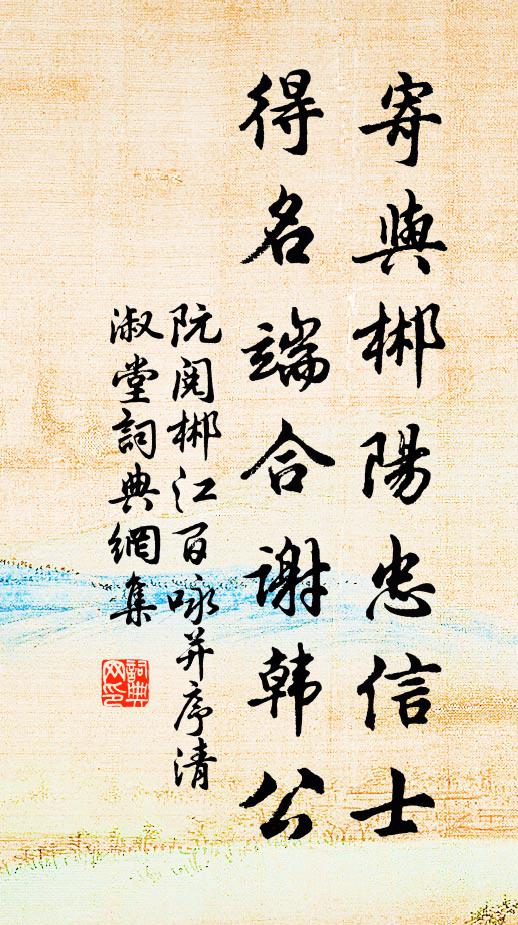 寄與郴陽忠信士
得名端合謝韩公
阮閱郴江百咏并序清
淑堂詞典網集
詞典網印